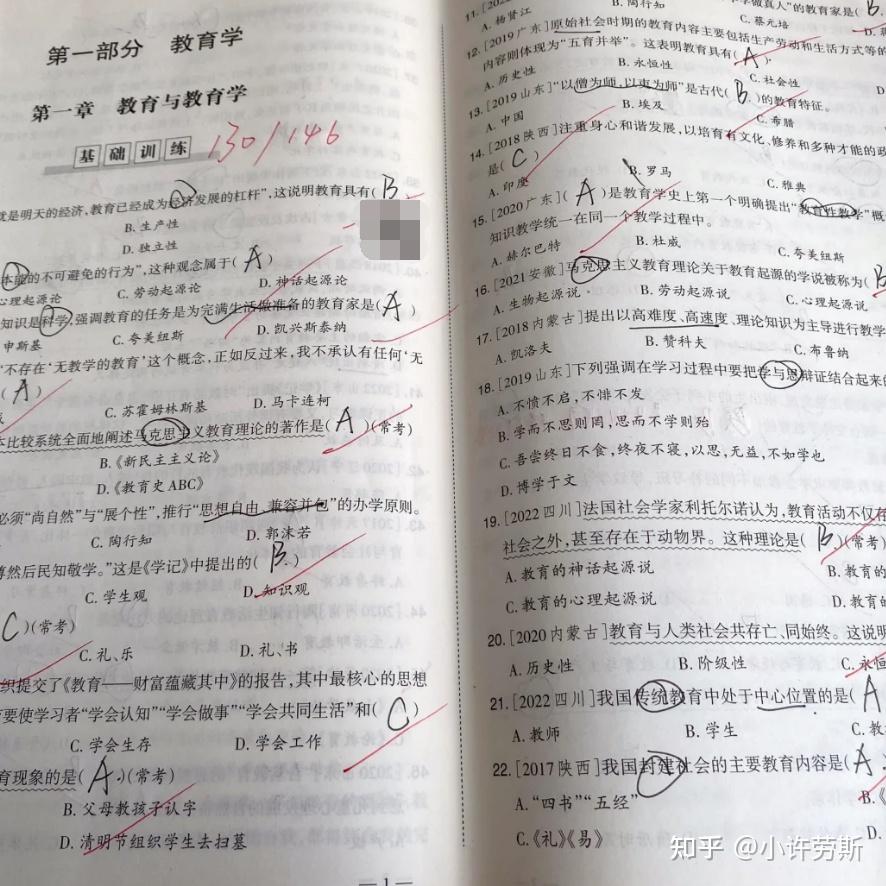 第一部分 教育学
第一章 教育与教育学
基础训练 130/146
就是明天的经济,教育已经成为经济发展的杠杆”,这说明教育具有( B
B.生产性
D.独立性
本能的不可避免的行为”,这种观念属于( A )
心理起源论 C.劳动起源论 D.神话起源论
知识是科学,强调教育的任务是为完满生活做准备的教育家是( A )
申斯基 C.夸美纽斯 D.凯兴斯泰纳
“不存在‘无教学的教育’这个概念,正如反过来,我不承认有任何‘无
( A )
C.苏霍姆林斯基 D.马卡连柯
本比较系统全面地阐述马克思主义教育理论的著作是( A )(常考)
B.《新民主主义论》
D.《教育史ABC》
必须“尚自然”与“展个性”,推行“思想自由、兼容并包”的办学原则。
C.陶行知 D.郭沫若
尊然后民知敬学。”这是《学记》中提出的( B )
C.学生观 D.知识观
C )(常考)
C.礼、乐 D.礼、书
织提交了《教育——财富蕴藏其中》的报告,其中最核心的思想
要使学习者“学会认知”“学会做事”“学会共同生活”和( C )
C.学会生存 D.学会工作
育现象的是( A )(常考)
B.父母教孩子认字
D.清明节组织学生去扫墓
— 1 —
11.
做真人”的教育家是( B
A.杨贤江 B.陶行知 C.蔡元培
12.[2019广东]原始社会时期的教育内容主要包括生产劳动和生活方式等的
内容则体现为“五育并举”。这表明教育具有( A )
A.历史性 B.永恒性 C.社会性
13.[2019山东]“以僧为师,以吏为师”是古代( B )的教育特征。
A.中国 B.埃及 C.希腊
14.[2018陕西]注重身心和谐发展,以培育有文化、修养和多种才能的政
是( C )
A.印度 B.罗马 C.雅典
15.[2020广东]( A )是教育学史上第一个明确提出“教育性教学”概
知识教学统一在同一个教学过程中。
A.赫尔巴特 B.杜威 C.夸美纽斯
16.[2021安徽]马克思主义教育理论关于教育起源的学说被称为( B
A.生物起源说 B.劳动起源说 C.心理起源说
17.[2018内蒙古]提出以高难度、高速度、理论知识为主导进行教学
A.凯洛夫 B.赞科夫 C.布鲁纳
18.[2019山东]下列强调在学习过程中要把学与思辩证结合起来的
A.不愤不启,不悱不发
B.学而不思则罔,思而不学则殆
C.吾尝终日不食,终夜不寝,以思,无益,不如学也
D.博学于文
19.[2022四川]法国社会学家利托尔诺认为,教育活动不仅存
社会之外,甚至存在于动物界。这种理论是( B )(常考
A.教育的神话起源说 B.教育的
C.教育的心理起源说 D.教育的
20.[2020内蒙古]教育与人类社会共存亡、同始终。这说明
A.历史性 B.阶级性 C.永恒
21.[2022四川]我国传统教育中处于中心位置的是( A
A.教师 B.学生 C.教
22.[2017陕西]我国封建社会的主要教育内容是( A
A.“四书”“五经” B.《
C.《礼》《易》 D.
知乎 @小许劳斯